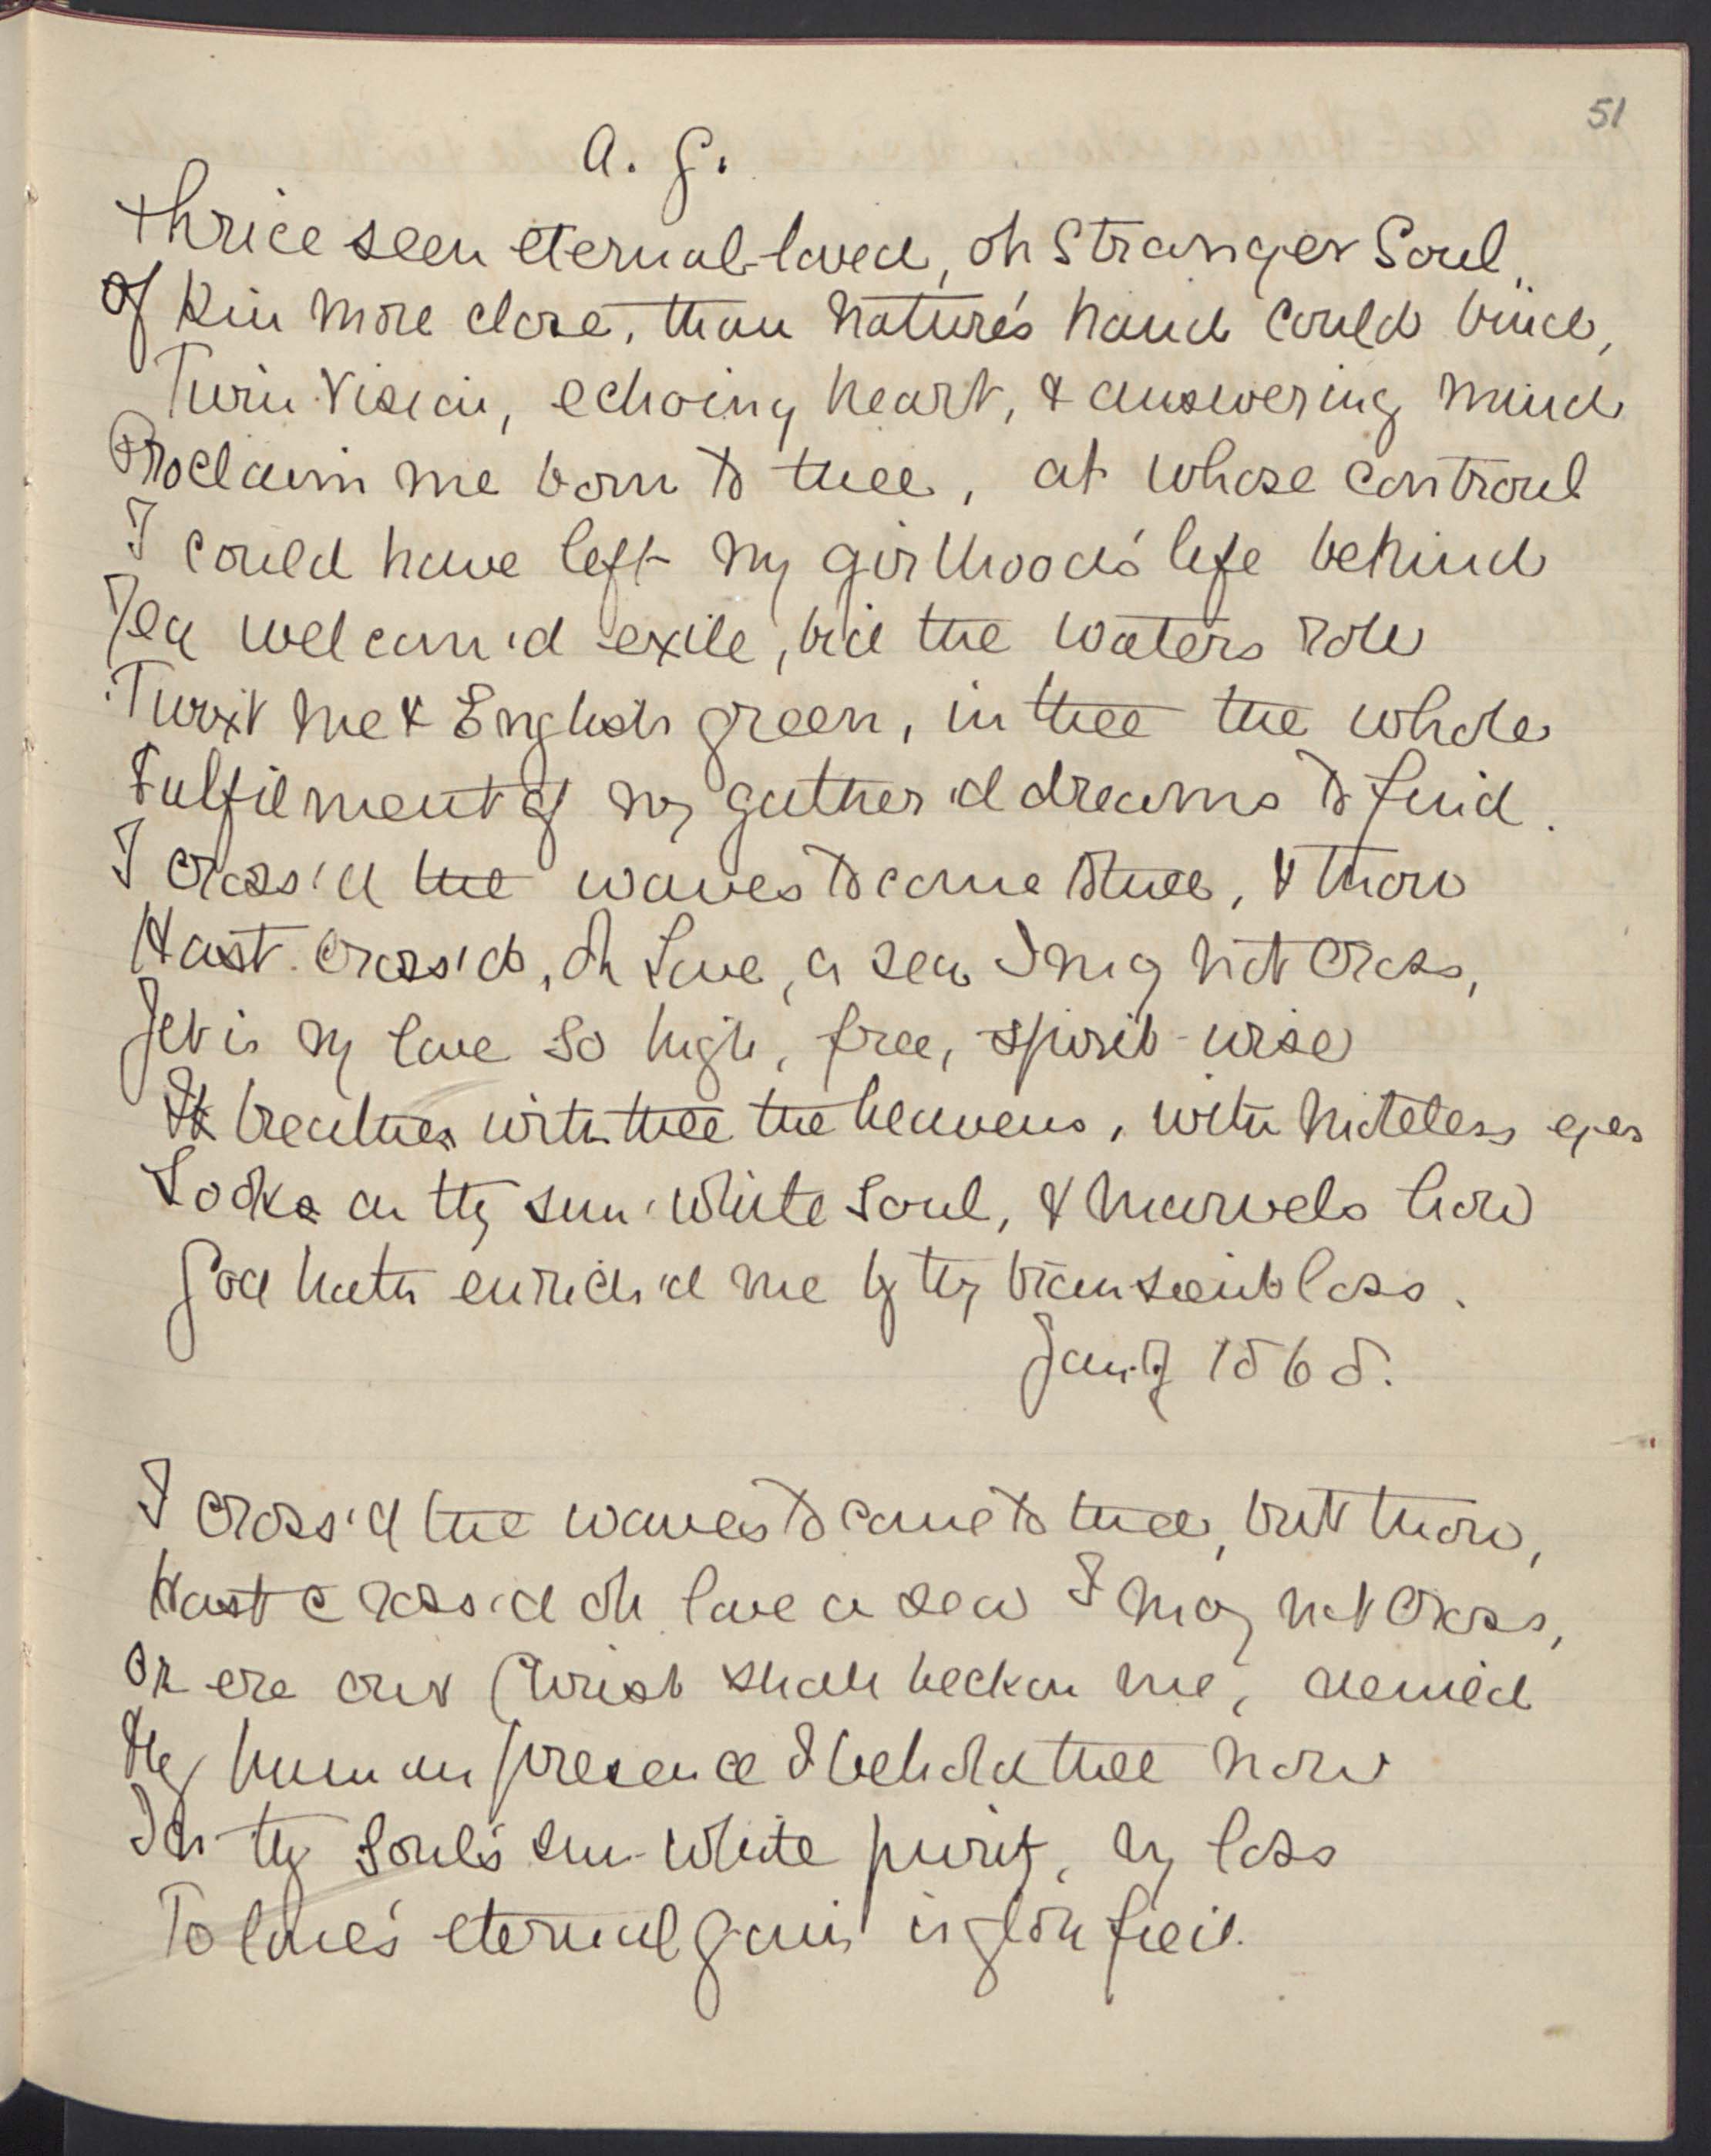 51
A. G.
Thrice seen eternal-loved, oh Stranger Soul,
Of kin more close, than nature's hand could bind,
Twin Vision, echoing heart, & answering mind
Proclaim me born to thee, at whose controul
I could have left my girlhood's life behind
Yea welcom'd exile, bid the waters roll
Twixt me & English green, in thee the whole
Fulfilment of my gather'd dreams to find.
I cross'd the waves to come to thee, & thou
Hast cross'd, oh Love, a sea I may not cross,
Yet is my love so high, free, spirit-wise
It breathes with thee the heavens, with eyes
Looks on thy sun-white soul, & marvels how
God hath enrich'd me by thy transient loss.
Jany 1868.
I cross'd the waves to come to thee, but thou,
Hast cross'd oh love a sea I may not cross,
Or ere our Christ shall beckon me, denied
thy human presence I behold thee now
In thy soul's sun-white purity, my loss
To love's eternal gain is glorified.